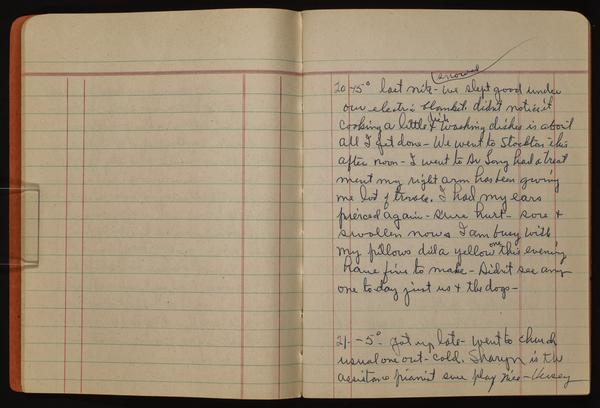 snowed
20 -5° last nite - we slept good under
our electric blanket. didn't notice it
cooking a little & washing dishes is about
all I get done - We went to Stockton this
after noon - I went to Dr Long had a treat
ment my right arm has been giving
me lot of trouble. I had my ears
pierced again - sure hurt - sore &
swollen now & I am busy with
my pillows did a yellow one this evening
have five to make - Didn't see any
one to-day just us & the dogs -
21 - -5° got up late - went to church
usual one out - cold. Sharyn is the
assistant pianist sure play nice -